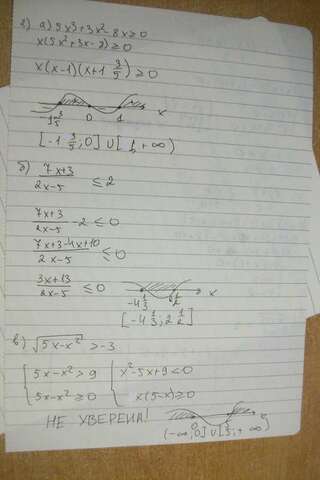 2) а) 5x³+3x²-8x≥0
x(5x²+3x-8)≥0
x(x-1)(x+1 3/5)≥0
-1 3/5 0 1 x
[-1 3/5; 0] ∪ [1; +∞)
б) (7x+3)/(2x-5) ≤2
(7x+3)/(2x-5) -2 ≤0
(7x+3-4x+10)/(2x-5) ≤0
(3x+13)/(2x-5) ≤0
-4 1/3 2 1/2 x
[-4 1/3; 2 1/2]
в) √(5x-x²) >-3
{ 5x-x²>9 { x²-5x+9<0
5x-x²≥0 x(5-x)≥0
НЕ УВЕРЕНА!
0 5 x
(-∞; 0] ∪ [5; +∞)